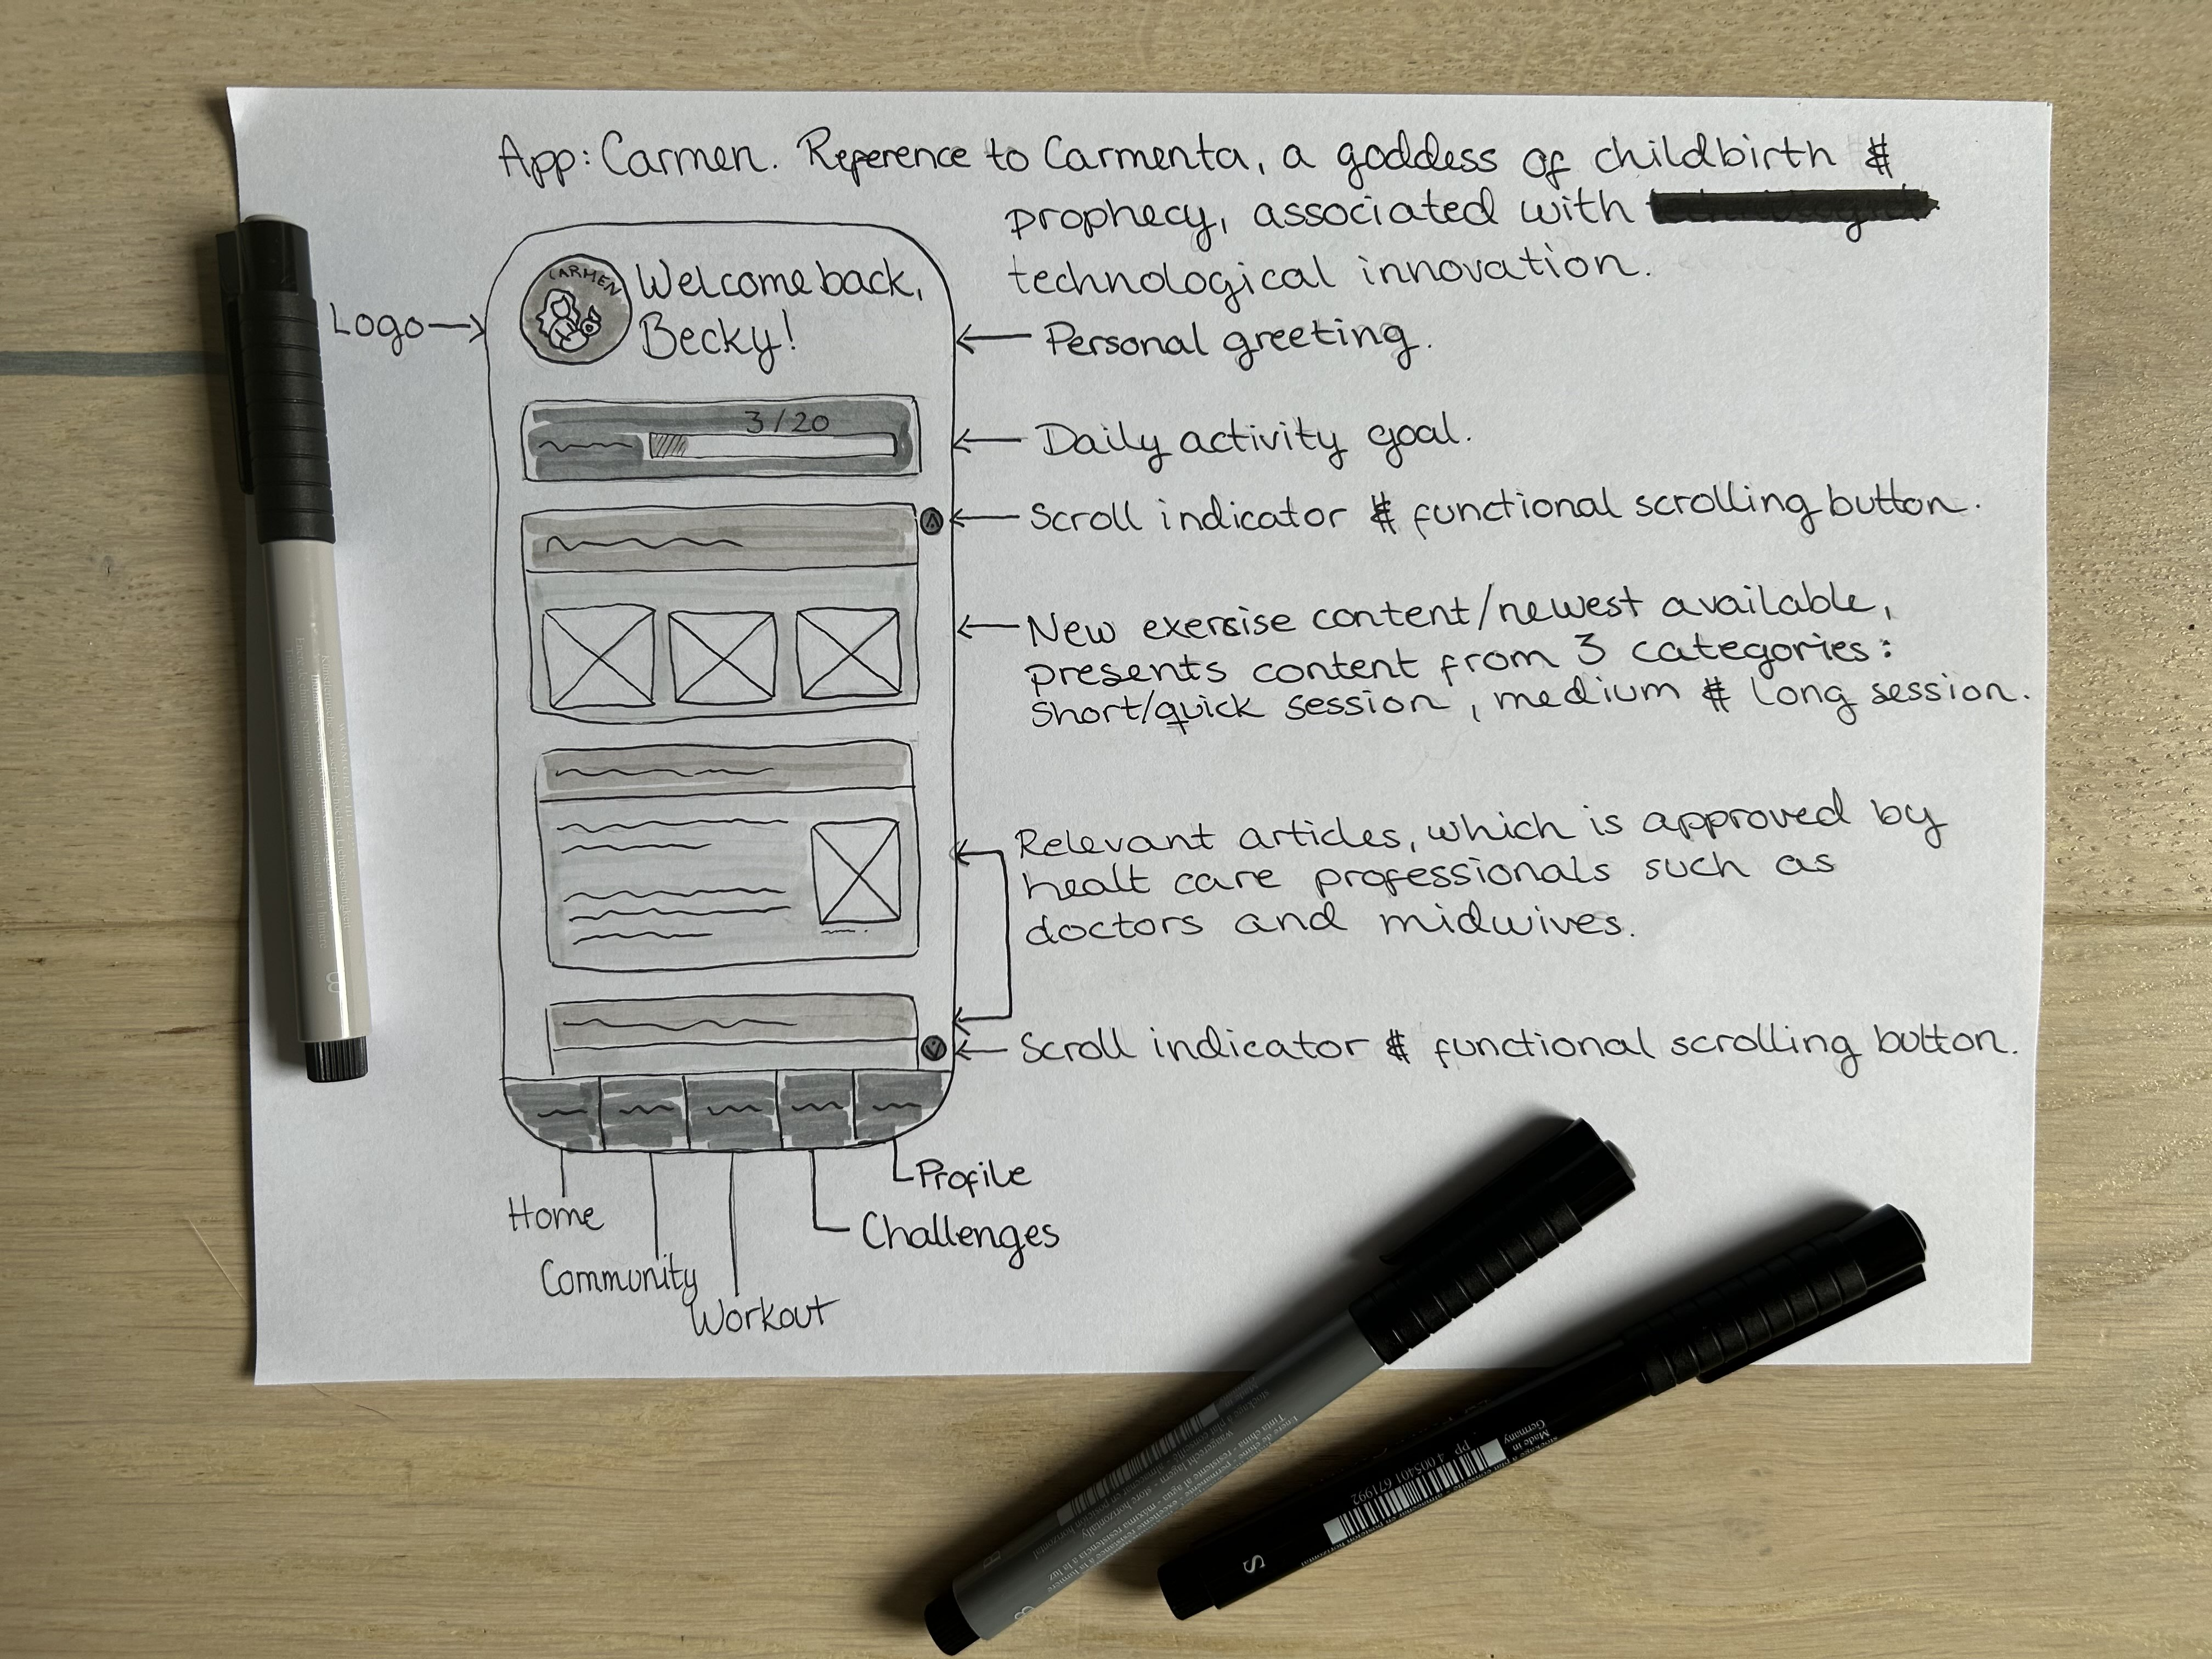 App: Carmen. Reference to Carmenta, a goddess of childbirth &
prophecy, associated with
technological innovation.
Logo
CARMEN
Welcome back,
Becky!
Personal greeting.
3/20
Daily activity goal.
Scroll indicator & functional scrolling button.
New exercise content/newest available,
presents content from 3 categories:
Short/quick session, medium & long session.
Relevant articles, which is approved by
healt care professionals such as
doctors and midwives.
Scroll indicator & functional scrolling button.
Profile
Home
Challenges
Community
Workout
Made in
Germany
PP
4 005401 671992
S
B